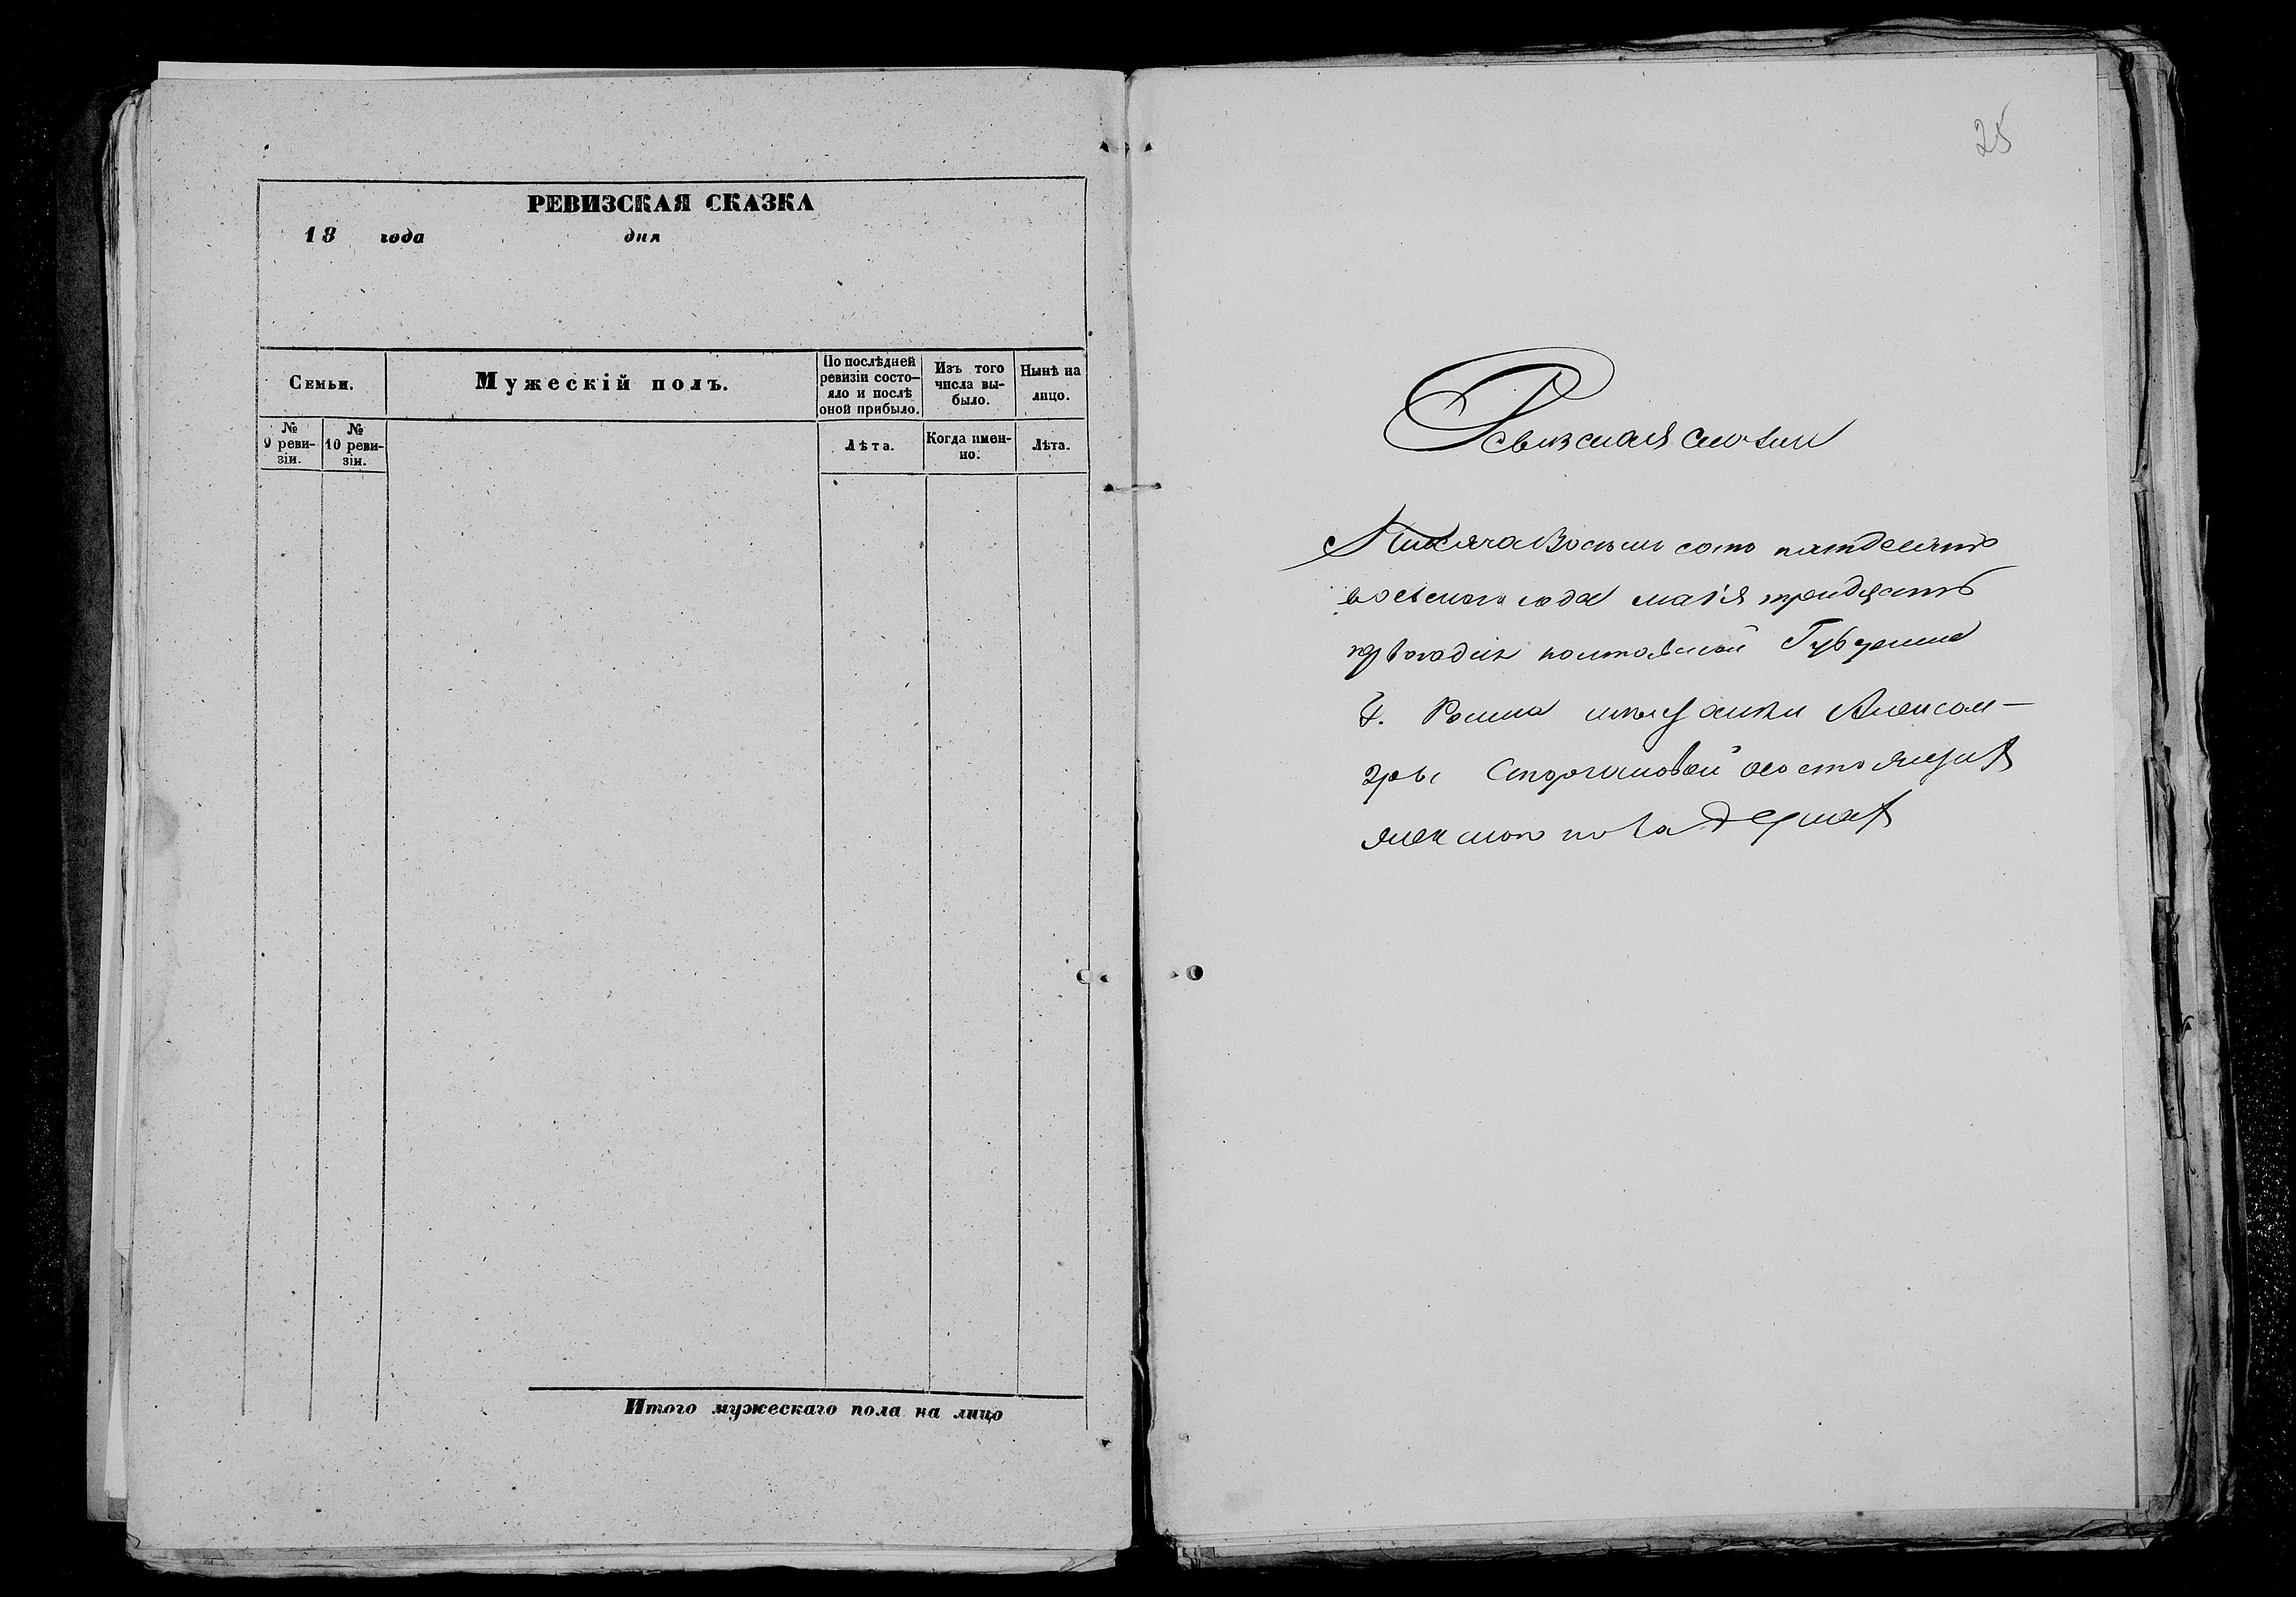 РЕВИЗСКАЯ СКАЗКА
18 года дня
Семьи.
Мужескій полъ.
По послѣдней ревизіи состо-
яло и послѣ оной прибыло.
Изъ того числа вы-
было.
Нынѣ на лицо.
№ 9 реви-
зіи.
№ 10 реви-
зіи.
Лѣта.
Когда имен-
но.
Лѣта.
Итого мужескаго пола на лицо
25
Ревизская
Тысяча Восемь сотъ патдесятъ
восмого года маія тридцять
полтавской Губерніи
Г. Ромна Алексан-
дры